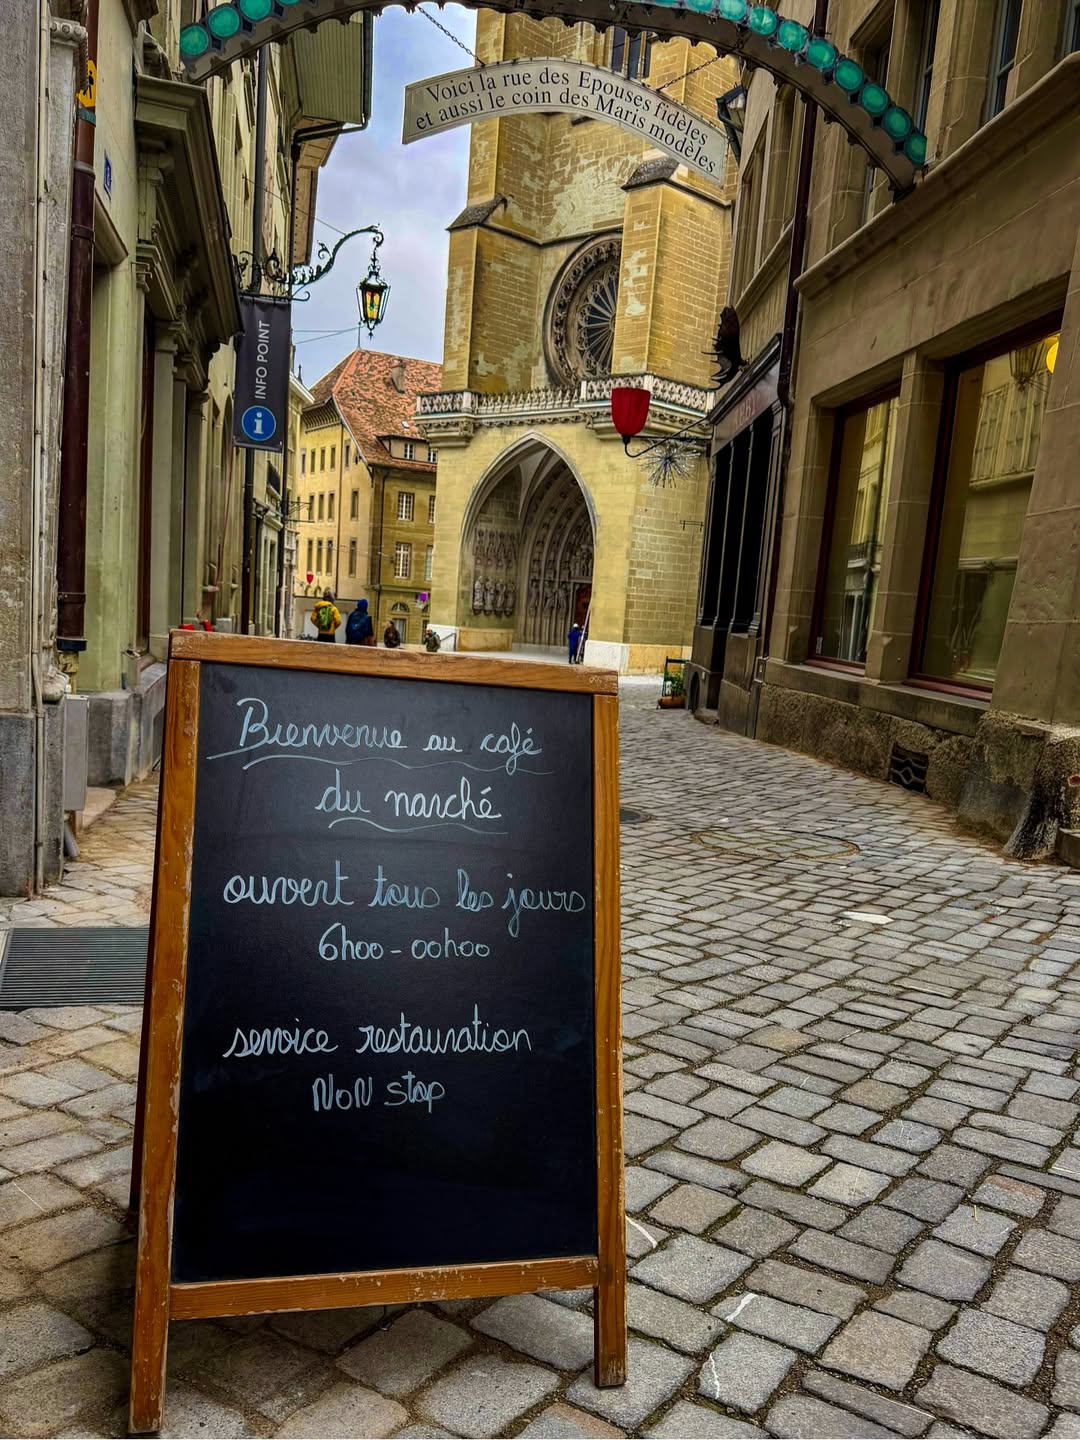 Voici la rue des Epouses fidèles
et aussi le coin des Maris modèles
INFO POINT
i
Bienvenue au café
du marché
ouvert tous les jours
6h00-00h00
service restauration
NoN stop